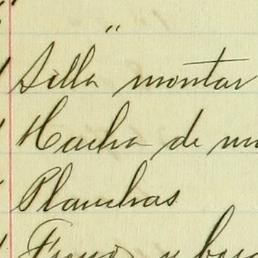 "
Silla montar
Hacha de
Planchas
Freno y